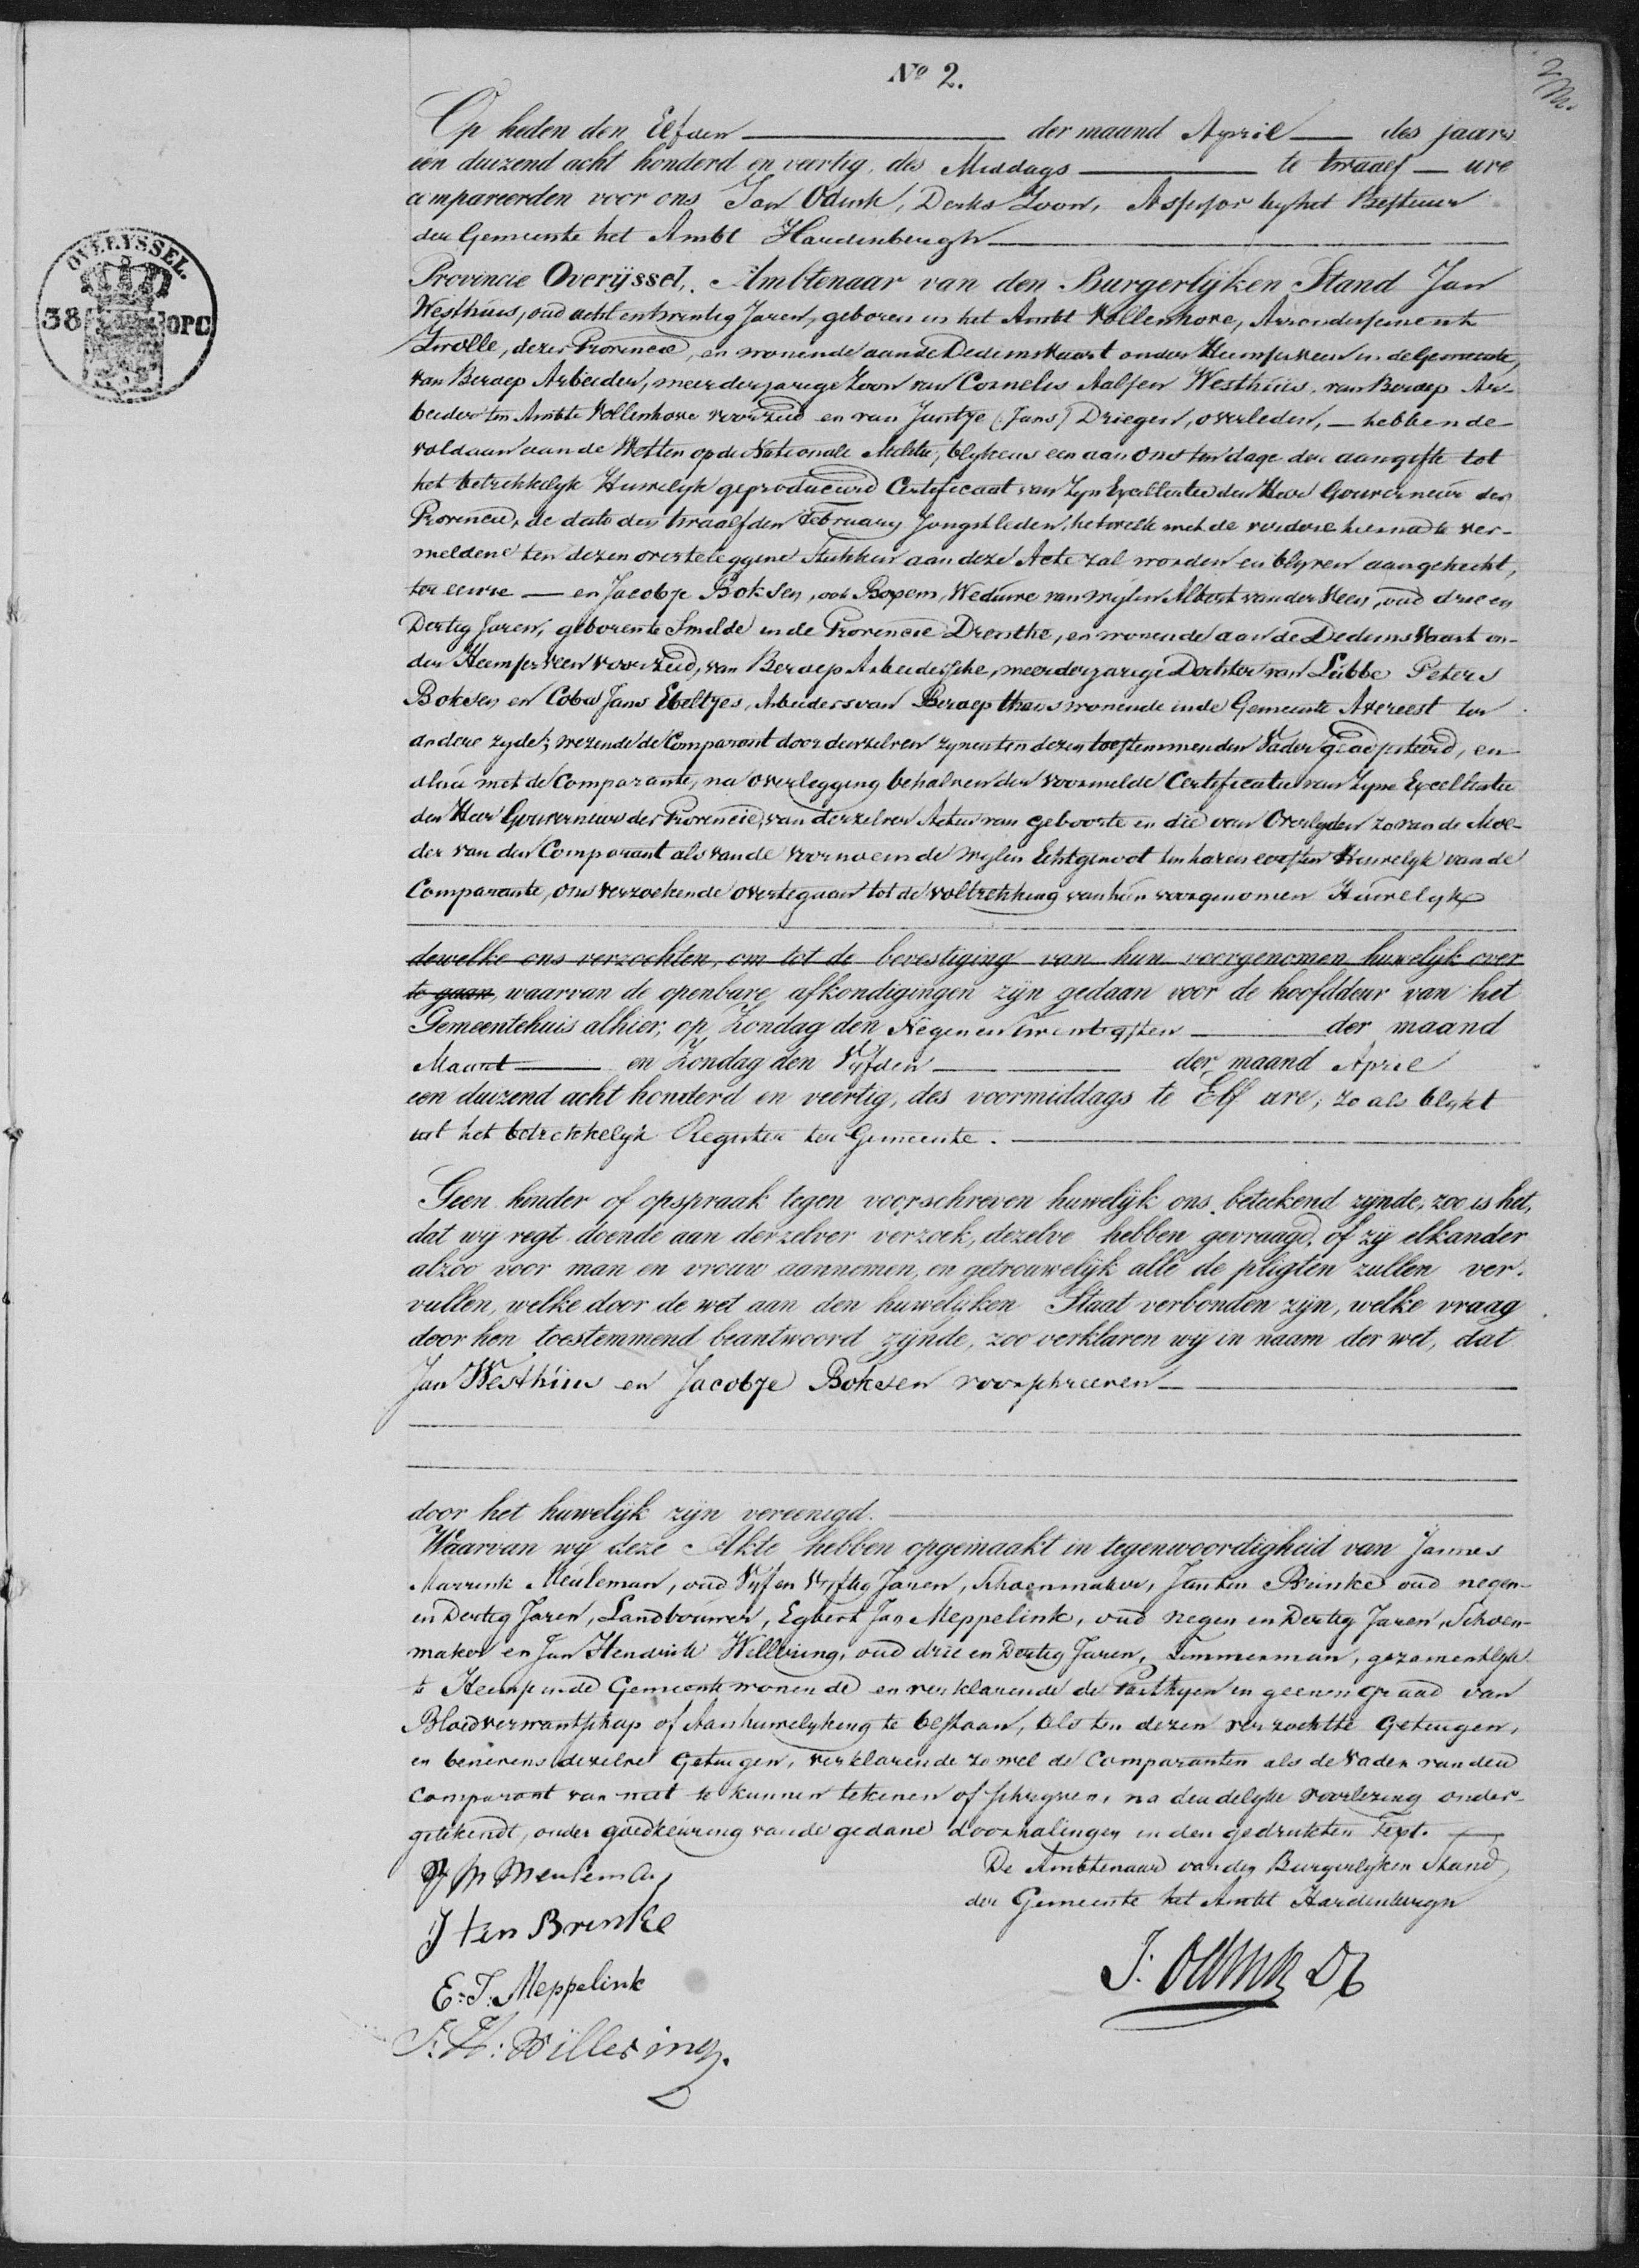 Nº 2.
2
Op heden den Elfden der maand April des jaars
een duizend acht honderd en veertig, des Middags te twaalf ure
compareerden voor ons Jan Odink, Derks Zoon, Assessor by het Bestuur
der Gemeente het Ambt Hardenbergh
OVERYSSEL.
38 OPC
Provincie Overijssel, Ambtenaar van den Burgerlijken Stand Jan
Westhuis, oud acht en twintig Jaren, geboren in het Ambt Vollenhove, Arrondissement
Zwolle, dezer Provincie, en wonende aan de Dedemsvaart onder Heemserveen in de Gemeente,
van Beroep Arbeider, meerderjarige Zoon van Cornelis Aalsen Westhuis, van Beroep Ar-
beider ten Ambte Vollenhove voorzeid en van Jantje (Jans) Driegen, overleden, — hebbende
voldaan aan de Wetten op de Nationale Militie, blykens een aan Ons ten dage der aangifte tot
het betrekkelyk Huwelyk geproduceerd Certificaat van Zyn Excellentie den Heer Gouverneur der
Provincie, de dato den twaalfden February Jongstleden, hetwelk met de verdere hierna te ver-
meldene ten dezen overteleggene Stukken aan deze Acte zal worden en blyven aangehecht,
ter eenre — en Jacobje Boksen, ook Boxem, Weduwe van wylen Albert van der Veen, oud drie en
Dertig Jaren, geboren te Smilde in de Provincie Drenthe, en wonende aan de Dedemsvaart on-
der Heemserveen voorzeid, van Beroep Arbeidersche, meerderjarige Dochter van Lubbe Peters
Boksen en Coba Jans Ebeltjes, Arbeiders van Beroep thans wonende in de Gemeente Avereest ter
andere zyde; wezende de Comparant door deszelven zynen ten dezen toestemmenden Vader geadsisteerd, en
alzoo met de Comparante, na overlegging behalven der voormelde Certificatie van Zyne Excellentie
den Heer Gouverneur der Provincie, van derzelver Acten van geboorte en die van Overlyden zo van de Moe-
der van den Comparant als van de voornoemde wylen Echtgenoot ten haren eersten Huwelyk van de
Comparante, ons verzoekende overtegaan tot de voltrekking van hun voorgenomen Huwelyk
dewelke ons verzochten, om tot de bevestiging van hun voorgenomen huwelijk over
te gaan, waarvan de openbare afkondigingen zijn gedaan voor de hoofddeur van het
Gemeentehuis alhier, op Zondag den Negen en Twintigsten der maand
Maart en Zondag den Vyfden der maand April
een duizend acht honderd en veertig, des voormiddags te Elf ure; zo als blykt
uit het betrekkelyk Register ter Gemeente.
Geen hinder of opspraak tegen voorschreven huwelijk ons beteekend zijnde, zoo is het,
dat wij regt doende aan derzelver verzoek, dezelve hebben gevraagd, of zij elkander
alzoo voor man en vrouw aannemen, en getrouwelijk alle de pligten zullen ver-
vullen, welke door de wet aan den huwelijken Staat verbonden zijn, welke vraag
door hen toestemmend beantwoord zijnde, zoo verklaren wij in naam der wet, dat
Jan Westhuis en Jacobje Boksen voorschreeven
door het huwelijk zijn vereenigd.
Waarvan wij deze Akte hebben opgemaakt in tegenwoordigheid van Jannes
Marrink Meuleman, oud Vyf en Vyftig Jaren, Schoenmaker, Jan ten Brinke oud negen
en Dertig Jaren, Landbouwer, Egbert Jan Meppelink, oud negen en Dertig Jaren, Schoen-
maker en Jan Hendrik Willering, oud drie en Dertig Jaren, Timmerman, gezamentlyk
te Heemse in de Gemeente wonende en verklarende de Parthyen in geenen graad van
Bloedverwantschap of Aanhuwelyking te bestaan, als ten dezen verzochte Getuigen,
en benevens dezelve Getuigen, verklarende zo wel de Comparanten als de Vader van den
Comparant van niet te kunnen tekenen of schryven, na duidelyke voorlezing onder-
getekendt, onder goedkeuring van de gedane doorhalingen in den gedrukten Text.
De Ambtenaar van den Burgerlyken Stand
der Gemeente het Ambt Hardenbergh
J M Meuleman
J ten Brinke
E: J: Meppelink
J: H: Willering.
J: Odink Dz